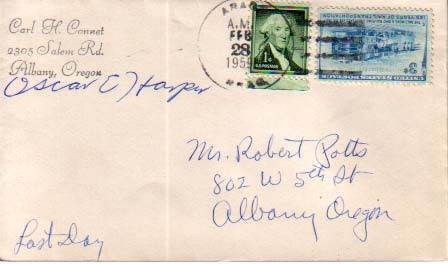 Carl H. Connet
2305 Salem Rd.
Albany, Oregon
Oscar C Harper
A.M.
FEB
28
1959
1¢
U.S. POSTAGE
3¢
UNITED STATES POSTAGE
Mr. Robert Potts
802 W 5th St
Albany Oregon
Last Day